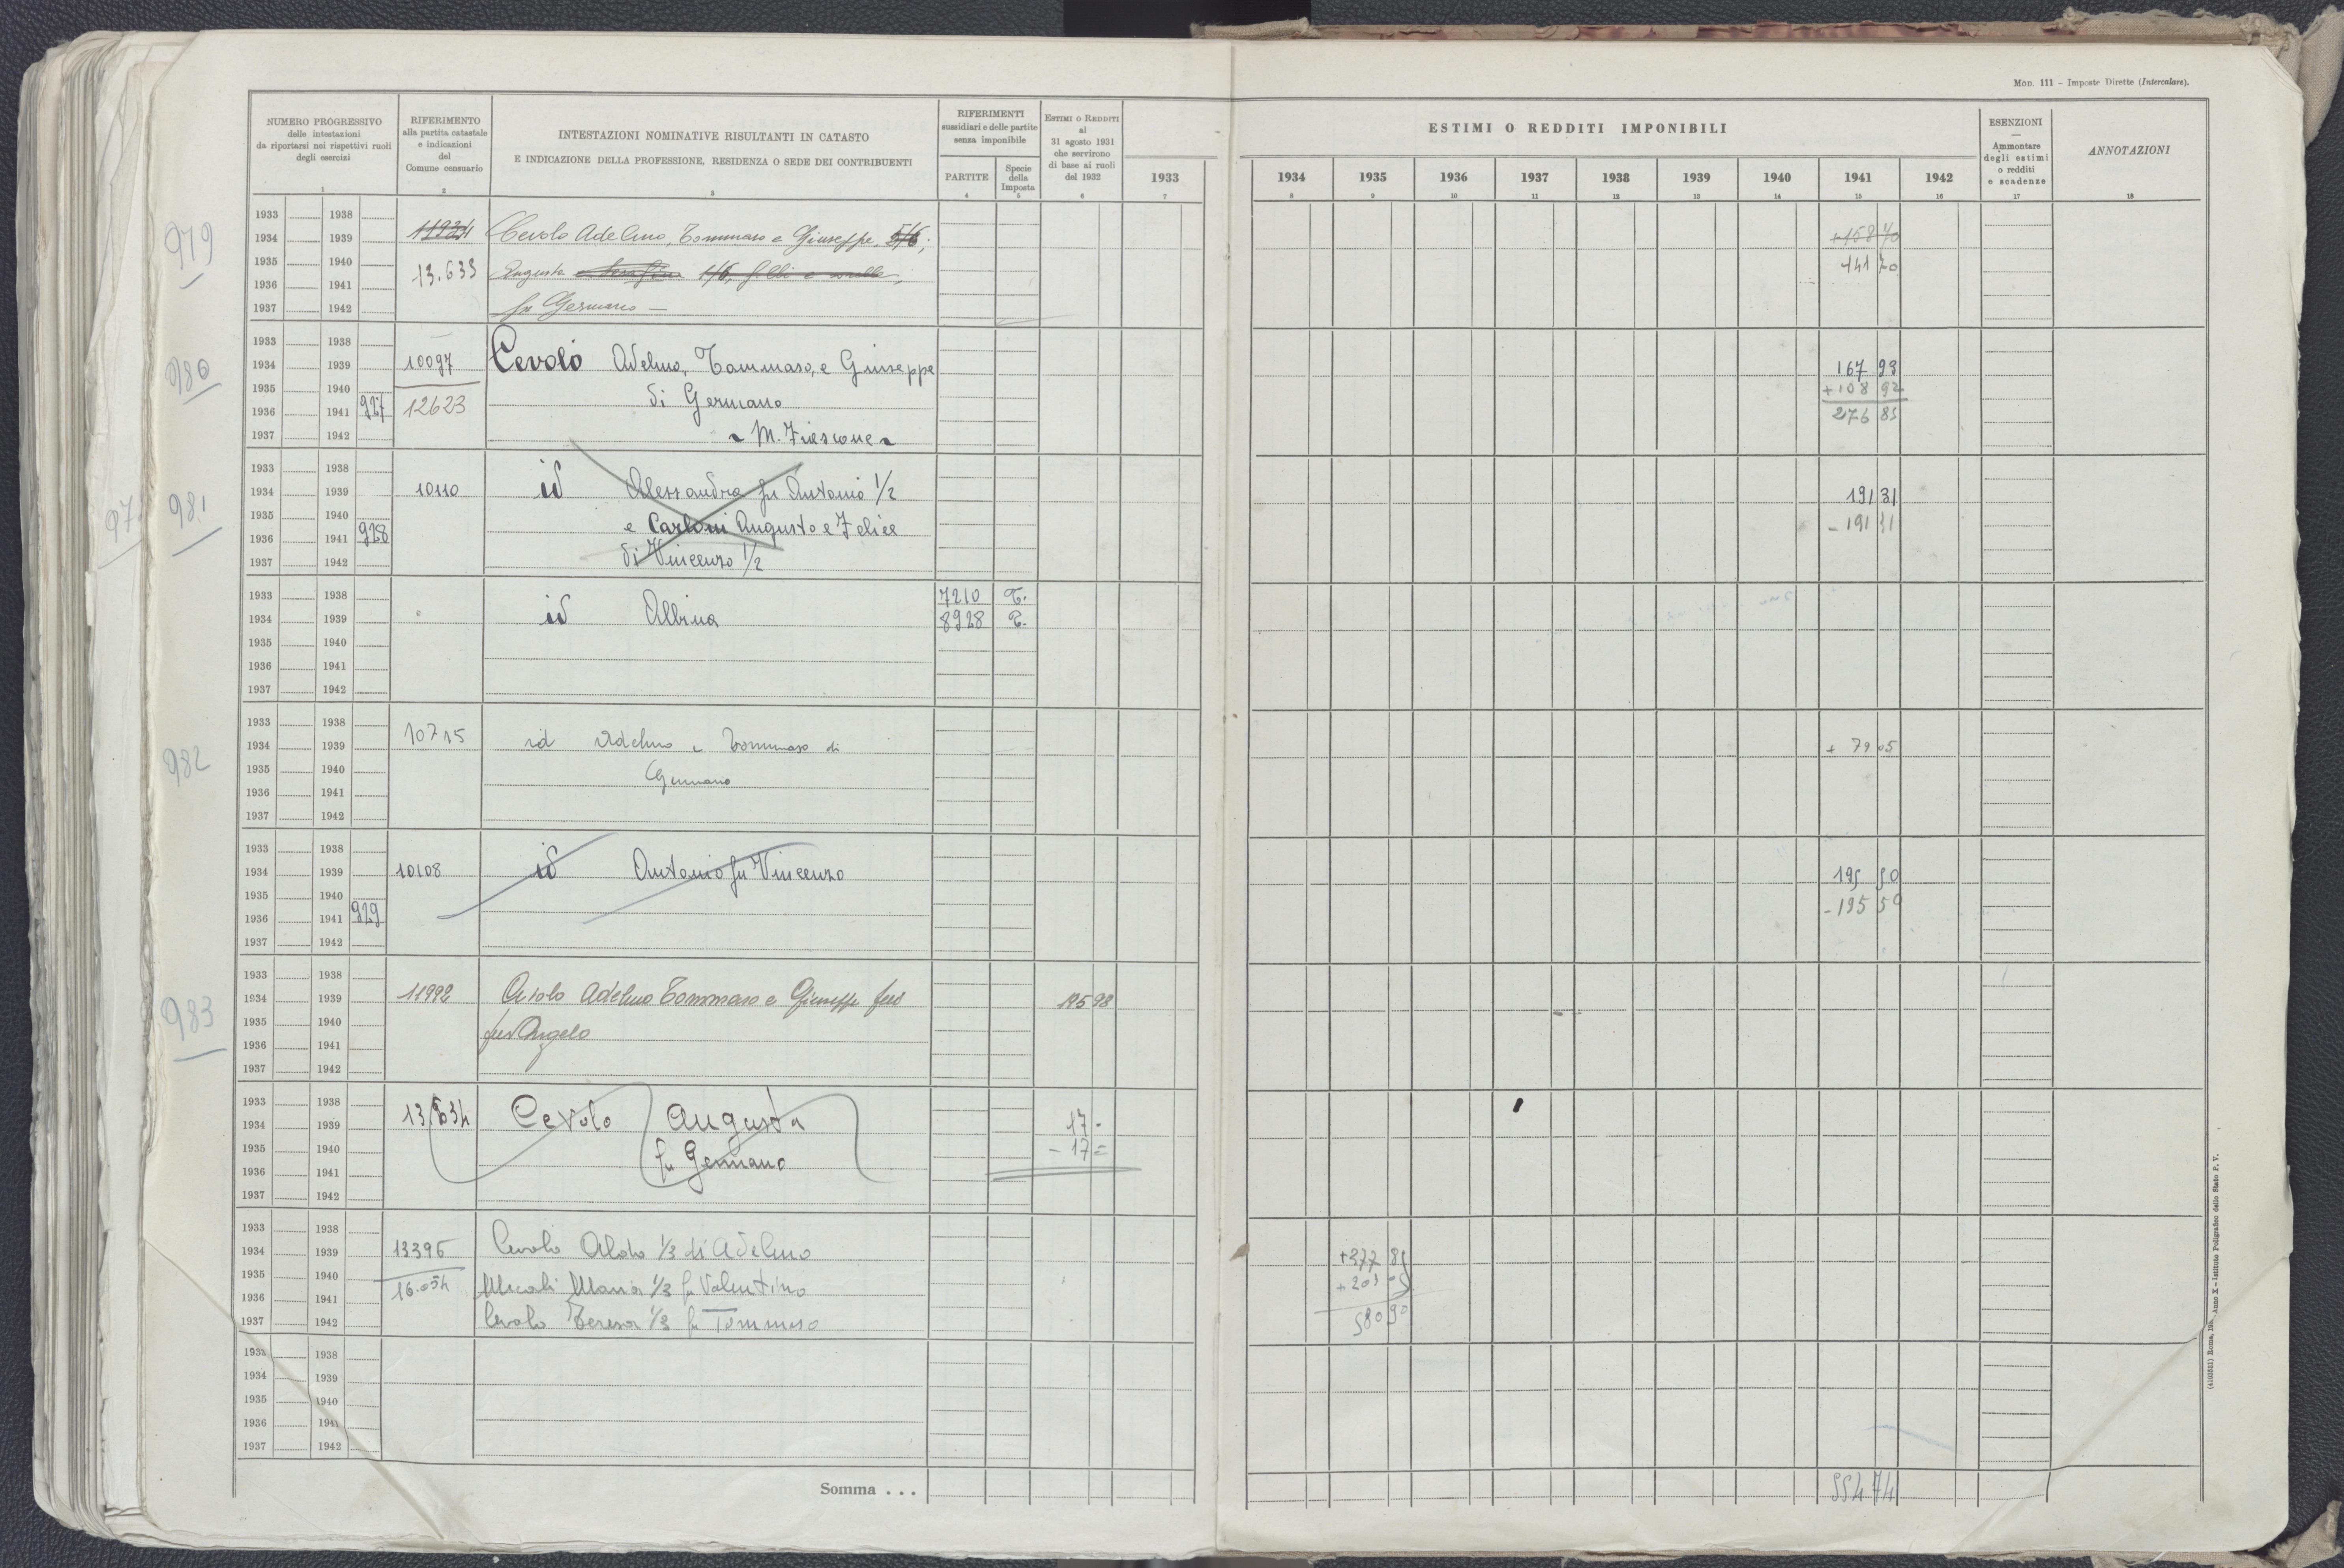 Mod. 111 - Imposte Dirette (Intercalare).
NUMERO PROGRESSIVO
delle intestazioni
da riportarsi nei rispettivi ruoli
degli esercizi
1
RIFERIMENTO
alla partita catastale
e indicazioni
del
Comune censuario
2
INTESTAZIONI NOMINATIVE RISULTANTI IN CATASTO
E INDICAZIONE DELLA PROFESSIONE, RESIDENZA O SEDE DEI CONTRIBUENTI
3
RIFERIMENTI
sussidiari e delle partite
senza imponibile
PARTITE
4
Specie
della
Imposta
5
ESTIMI O REDDITI
al
31 agosto 1931
che servirono
di base ai ruoli
del 1932
6
1933
7
ESTIMI O REDDITI IMPONIBILI
1934 1935 1936 1937 1938 1939 1940 1941 1942
8 9 10 11 12 13 14 15 16
ESENZIONI
—
Ammontare
degli estimi
o redditi
e scadenze
17
ANNOTAZIONI
18
979
1933 1938
1934 1939 Cevolo Adelmo, Tommaso e Giuseppe, 5/6; +168 70
1935 1940 13.633 Augusta 1/6, f.lli e sorelle, 141 70
1936 1941
1937 1942 fu Germano —
980
1933 1938
1934 1939 10097 Cevolo Adelmo, Tommaso, e Giuseppe 167 93
1935 1940 +108 92
1936 1941 927 12623 di Germano 276 85
1937 1942 M. Frescone
97 981
1933 1938
1934 1939 10110 id Alessandra fu Antonio 1/2 191 31
1935 1940 e Carloni Augusto e Felice - 191 31
1936 1941 928
1937 1942 di Vincenzo 1/2
1933 1938 7210 T.
1934 1939 id Albina 8928 T.
1935 1940
1936 1941
1937 1942
982
1933 1938
1934 1939 10715 id Adelmo e Tommaso di + 79 05
1935 1940 Germano
1936 1941
1937 1942
1933 1938
1934 1939 10108 id Antonio fu Vincenzo 195 50
1935 1940
1936 1941 929 - 195 50
1937 1942
983
1933 1938
1934 1939 11992 Cevolo Adelmo Tommaso e Giuseppe 195 98
1935 1940 fu Angelo
1936 1941
1937 1942
1933 1938 13634 Cevolo Augusta
1934 1939 17 -
1935 1940 fu Germano - 17 =
1936 1941
1937 1942
1933 1938
1934 1939 13396 Cevolo Aldo 1/3 di Adelmo +377 85
1935 1940 16.054 Micali Maria 1/3 fu Valentino +203 05
1936 1941
1937 1942 Cevolo Teresa 1/3 fu Tommaso 580 90
1933 1938
1934 1939
1935 1940
1936 1941
1937 1942
Somma . . . 554 74
Anno X - Istituto Poligrafico dello Stato P. V.